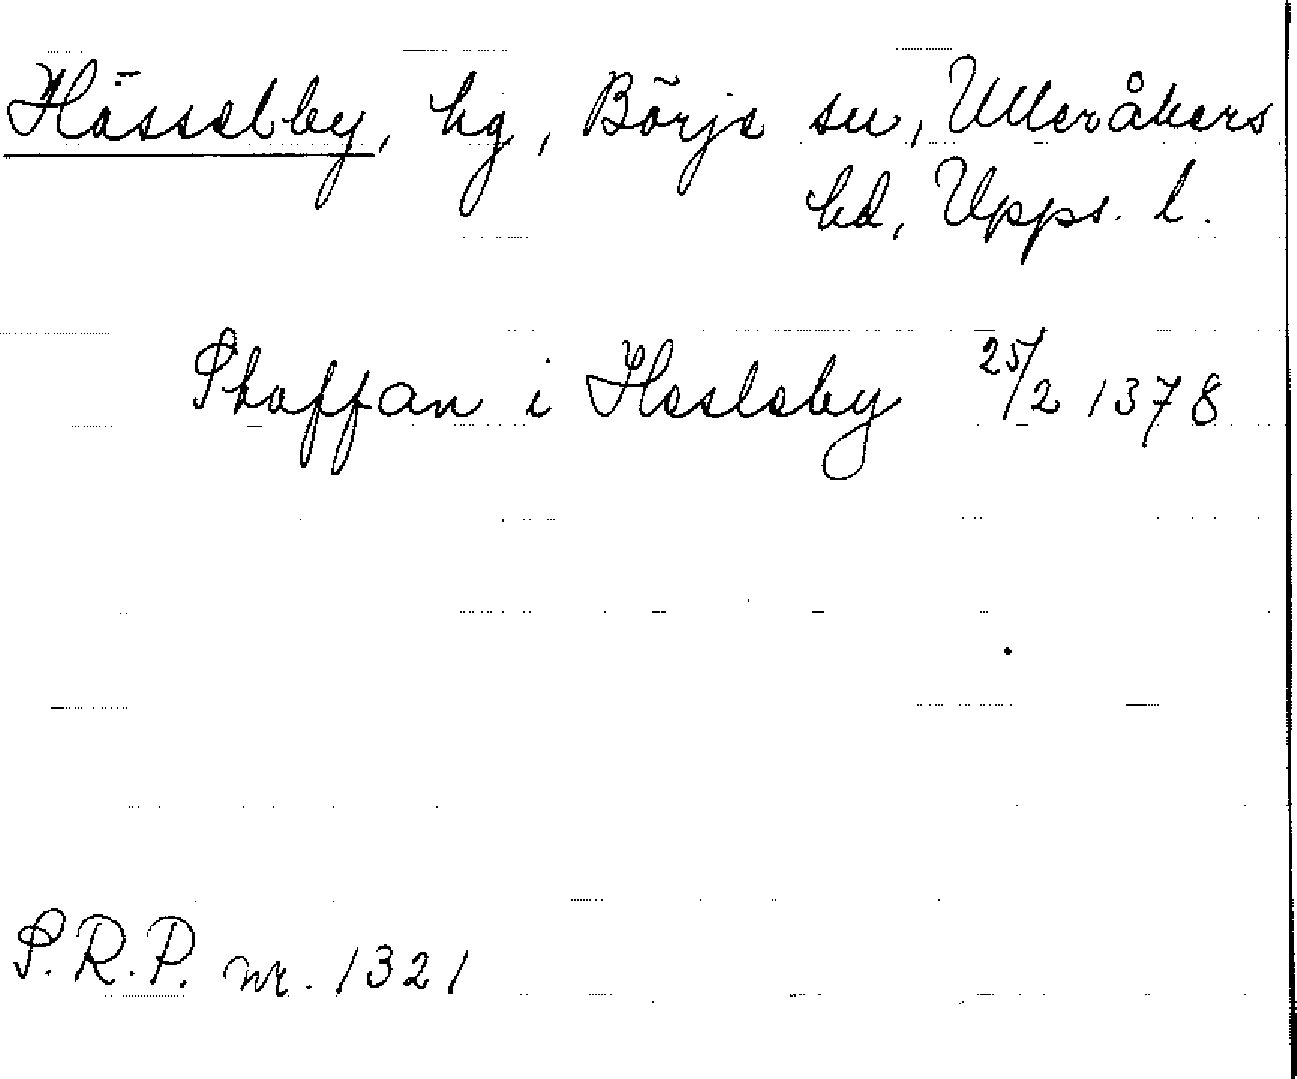 Hässelby, hg, Börje sn, Ulleråkers
hd, Upps. l.
Staffan i Hesleby 25/2 1378
S.R.P. nr. 1321